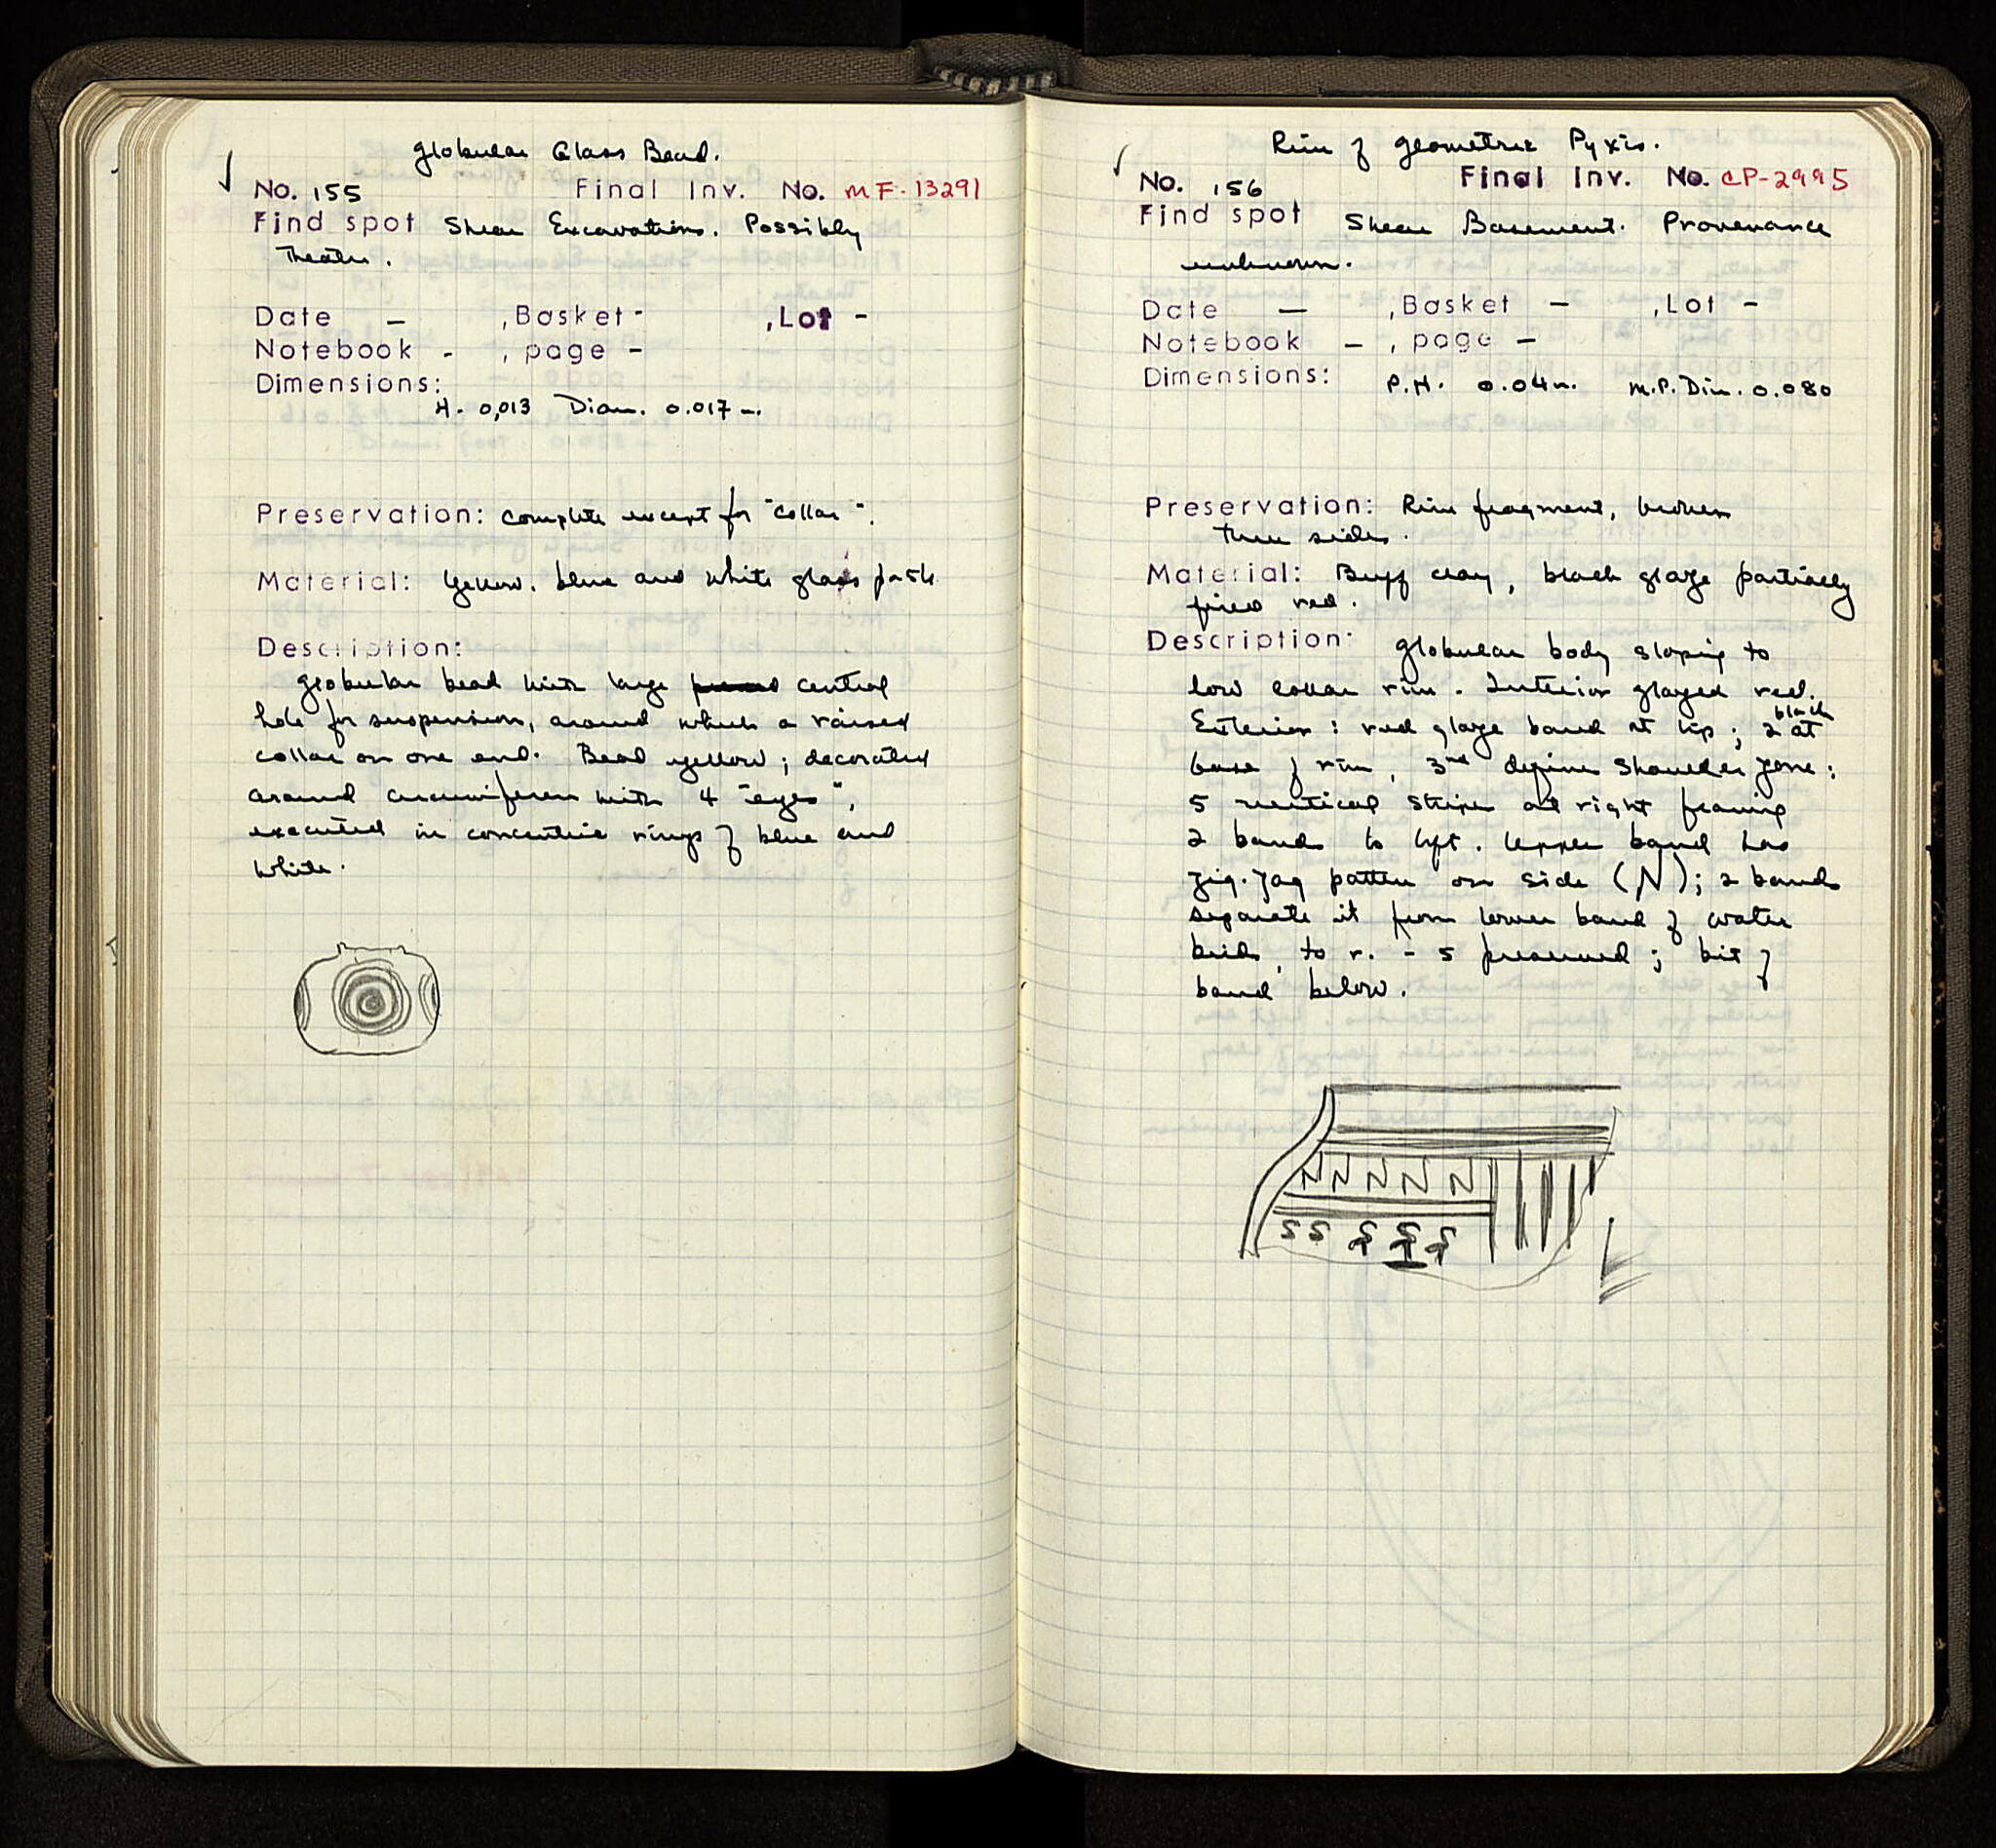 Globular Glass Bead.
No. 155 Final Inv. No. MF-13291
Find spot Shear Excavations. Possibly
Theater.
Date — , Basket - , Lot -
Notebook - , page -
Dimensions:
H. 0,013 Diam. 0.017 m.
Preservation: Complete except for "collar".
Material: Yellow, blue and white glass paste
Description:
Globular bead with large central
hole for suspension, around which a raised
collar on one end. Bead yellow; decorated
around circumference with 4 "eyes",
executed in concentric rings of blue and
white.
Rim of Geometric Pyxis.
No. 156 Final Inv. No. CP-2995
Find spot Shear Basement. Provenance
unknown.
Date — , Basket — , Lot -
Notebook — , page —
Dimensions: P.H. 0.04 m. M.P. Dim. 0.080
Preservation: Rim fragment, broken
three sides.
Material: Buff clay, black glaze partially
fired red.
Description: Globular body sloping to
low collar rim. Interior glazed red.
black
Exterior: red glaze band at lip; 2 at
base of rim, 3rd defines shoulder zone:
5 vertical stripes at right framing
2 bands to left. Upper band has
zig-zag pattern on side (N); 2 bands
separate it from lower band of water
birds, to r. - 5 preserved; bit of
band below.